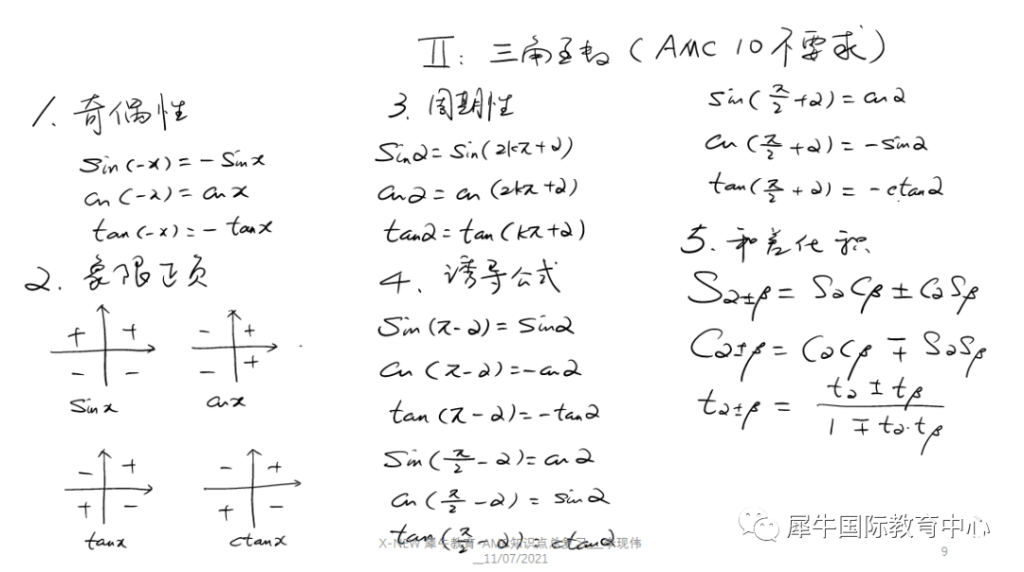 II: 三角函数 (AMC 10不要求)
1. 奇偶性
sin(-x) = -sinx
cos(-x) = cosx
tan(-x) = -tanx
2. 象限正负
+ +
- -
sinx
- +
- +
cosx
- +
+ -
tanx
- +
+ -
ctanx
3. 周期性
sinα = sin(2kπ+α)
cosα = cos(2kπ+α)
tanα = tan(kπ+α)
4. 诱导公式
sin(π-α) = sinα
cos(π-α) = -cosα
tan(π-α) = -tanα
sin(π/2-α) = cosα
cos(π/2-α) = sinα
tan(π/2-α) = ctanα
sin(π/2+α) = cosα
cos(π/2+α) = -sinα
tan(π/2+α) = -ctanα
5. 和差化积
Sα±β = SαCβ ± CαSβ
Cα±β = CαCβ ∓ SαSβ
tα±β = (tα ± tβ)/(1 ∓ tα·tβ)
犀牛国际教育中心
X-NEW 犀牛教育 AMC知识点总复习
现伟
__11/07/2021
9